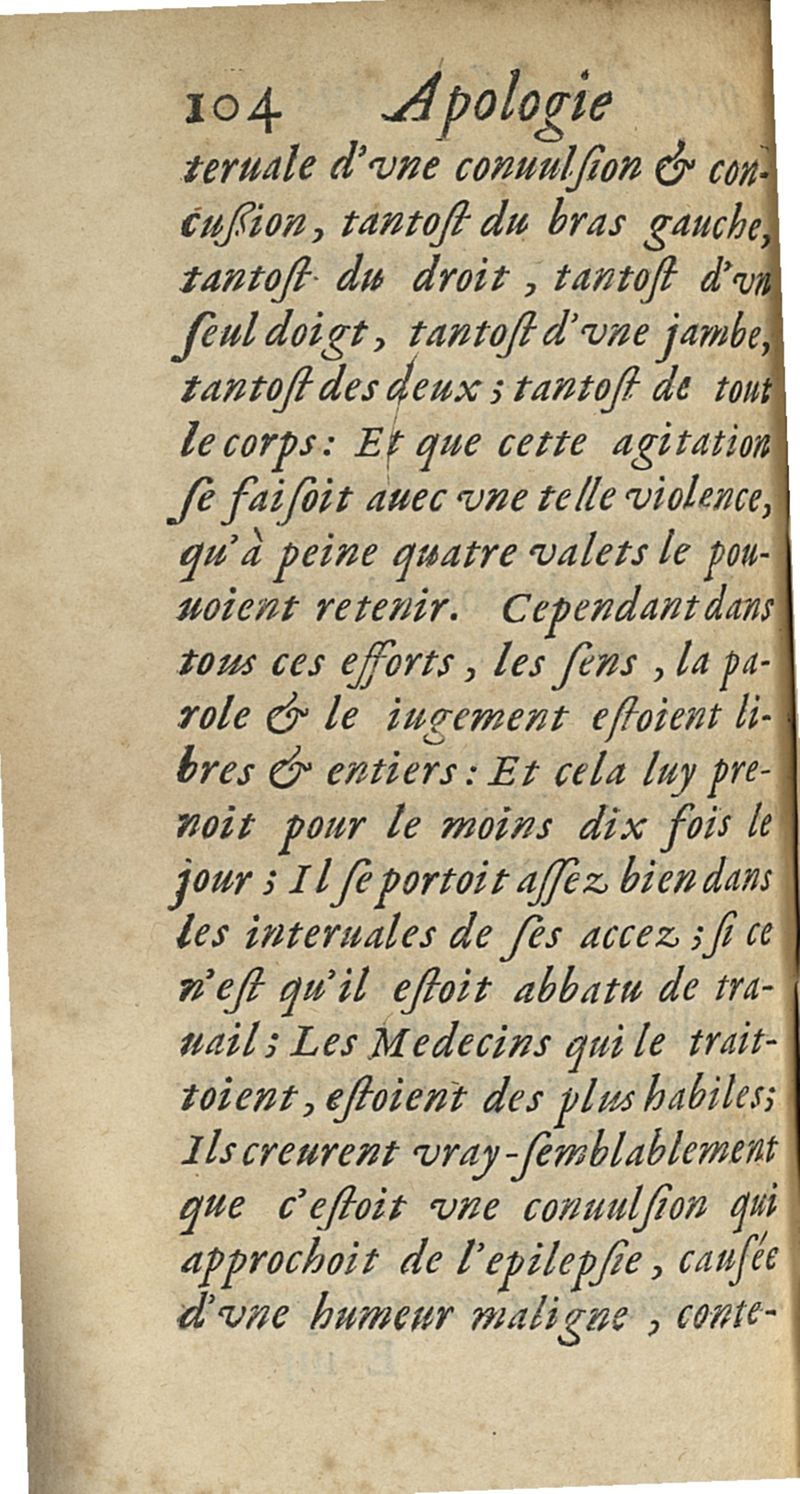 104 Apologie
teruale d'vne conuulſion & con-
cuſſion, tantoſt du bras gauche,
tantoſt du droit, tantoſt d'vn
ſeul doigt, tantoſt d'vne jambe,
tantoſt des deux; tantoſt de tout
le corps: Et que cette agitation
ſe faiſoit auec vne telle violence,
qu'à peine quatre valets le pou-
uoient retenir. Cependant dans
tous ces efforts, les ſens, la pa-
role & le iugement eſtoient li-
bres & entiers: Et cela luy pre-
noit pour le moins dix fois le
jour; Il ſe portoit aſſez bien dans
les interuales de ſes accez; ſi ce
n'eſt qu'il eſtoit abbatu de tra-
uail; Les Medecins qui le trait-
toient, eſtoient des plus habiles;
Ils creurent vray-ſemblablement
que c'eſtoit vne conuulſion qui
approchoit de l'epilepſie, cauſée
d'vne humeur maligne, conte-